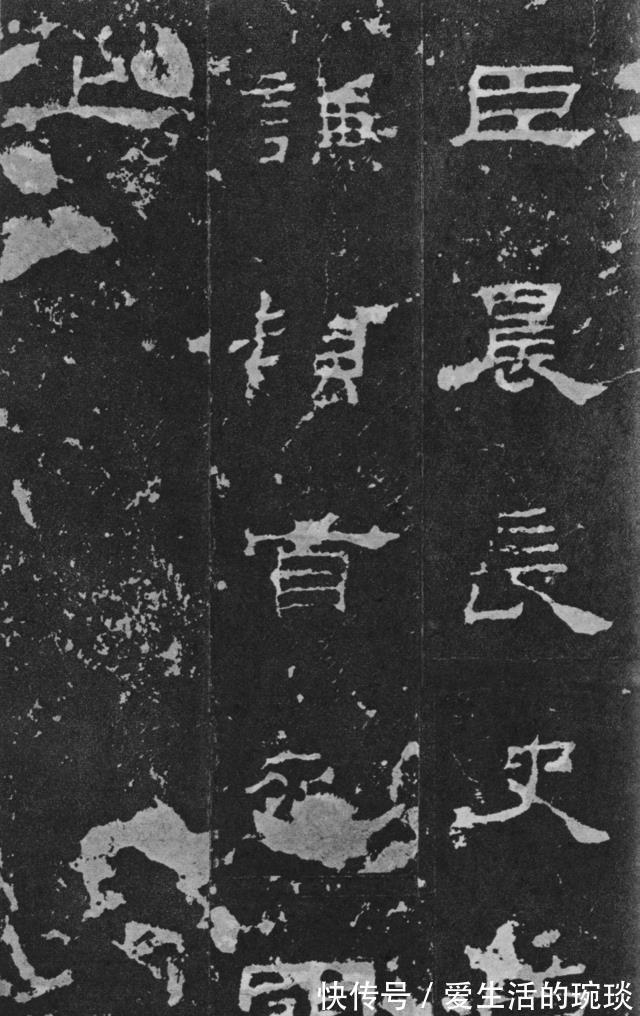 臣晨長史
謙頓首死
上
快传号 / 爱生活的琬琰